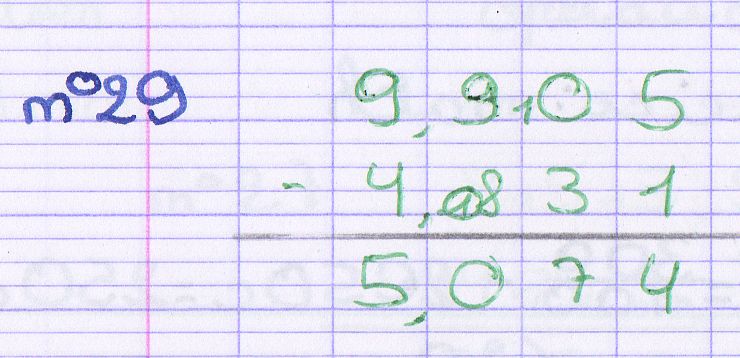 n°29 9,9₁05
- 4,₁831
5,074